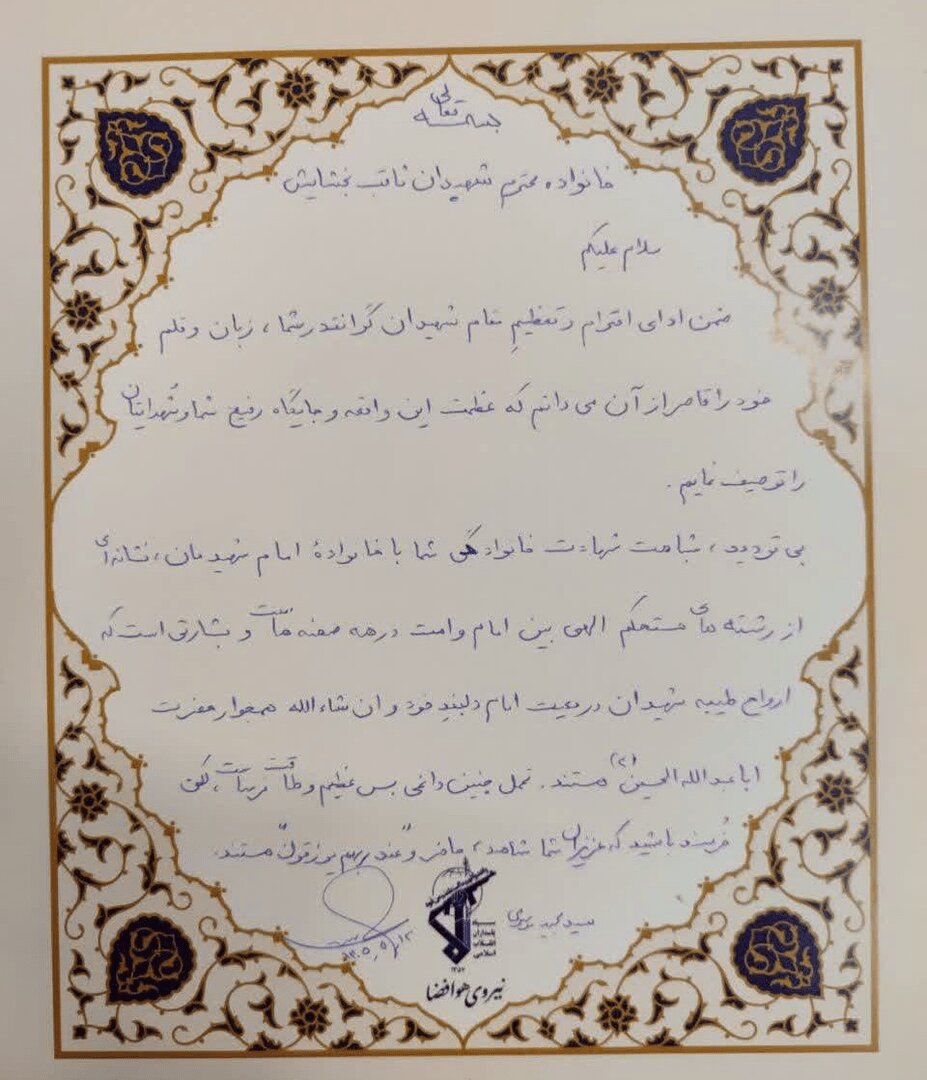 بسمه تعالی
خانواده محترم شهیدان ثاقب بخشایش
سلام علیکم
ضمن ادای احترام و تعظیمِ مقام شهیدان گرانقدر شما، زبان و قلم
خود را قاصر از آن می دانم که عظمت این واقعه و جایگاه رفیع شما و شهدایتان
را توصیف نمایم.
بی تردید، شباهت شهادت خانوادگی شما با خانوادهٔ امام شهیدمان، نشانه ای
از رشته های مستحکم الهی بین امام و امت در همه صحنه هاست و بشارتی است که
ارواح طیبه شهیدان در معیت امام دلبند خود و ان شاءالله همجوار حضرت
اباعبدالله الحسین هستند. تحمل چنین داغی بس عظیم و طاقت فرساست، لکن
خُرسند باشید که عزیزان شما شاهد، حاضر و "عند ربهم یرزقون" هستند.
سید مجید موسوی
۱۴۰۵,۵,۱۲
سپاه پاسداران انقلاب اسلامی
۱۳۵۷
نیروی هوافضا